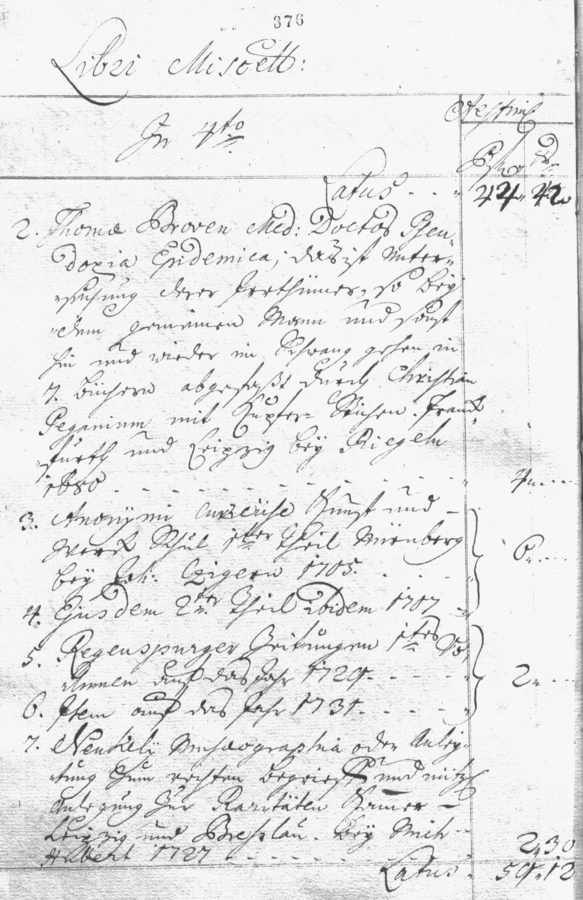 376
Libri Miscell:
Æstim
In 4to
Latus - - - 44. 42
2. Thomæ Broven Med: Doctos Pseu=
doxia Epidemica, das ist Unter=
suchung derer Irrthümer, so bey
dem gemeinen Mann und sonst
hin und wieder im Schwang gehen in
7. büchern abgefasst durch Christian
Peganium mit Kupfer=Stichen. Franck
furth und Leipzig bey Riegeln
1680 - - - - - - - - - 4. - - -
3. Anonymi curieuse Kunst und
Werck Schul 1ter Theil Nürenberg
bey Joh: Zigern 1705. - - - 6. - - -
4. Ejusdem 2ter Theil Ibidem 1707
5. Regenspurger Zeitungen 1tes Vo
lumen auf das Jahr 1729. - - - - 2. - - -
6. Item auf das Jahr 1731. - - - -
7. Neukelij Museographia oder Anley
tung zum rechten begrieff und nützl
Anlegung der Raritäten Kamer -
Leipzig und Bresslau. bey Mich
Hubert 1727 - - - - - - - 2. 30
Latus. 59. 12